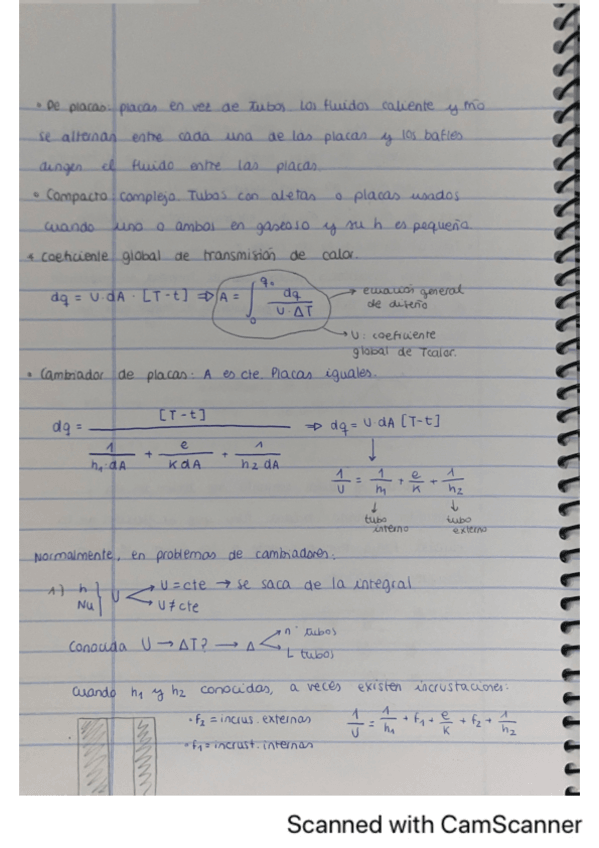 • De placas: placas en vez de tubos. Los fluidos caliente y frío
se alternan entre cada una de las placas y los bafles
dirigen el fluido entre las placas.
• Compacto complejo. Tubos con aletas o placas usados
cuando uno o ambos en gaseoso y su h es pequeña.
* Coeficiente global de transmisión de calor.
dq = U·dA · [T-t] ⇒ A = ∫₀^q₀ dq / (U·ΔT) → ecuación general
de diseño
→ U: coeficiente
global de Tcalor.
• Cambiador de placas: A es cte. Placas iguales.
dq = [T-t] / (1/(h₁·dA) + e/(K dA) + 1/(h₂ dA)) ⇒ dq = U·dA [T-t]
1/U = 1/h₁ + e/K + 1/h₂
tubo interno
tubo externo
Normalmente, en problemas de cambiadores:
1) h Nu } U → U = cte → se saca de la integral
→ U ≠ cte
Conocida U → ΔT? → A → nº tubos
→ L tubos
Cuando h₁ y h₂ conocidas, a veces existen incrustaciones:
· f₂ = incrus. externas 1/U = 1/h₁ + f₁ + e/K + f₂ + 1/h₂
· f₁ = incrust. internas
Scanned with CamScanner